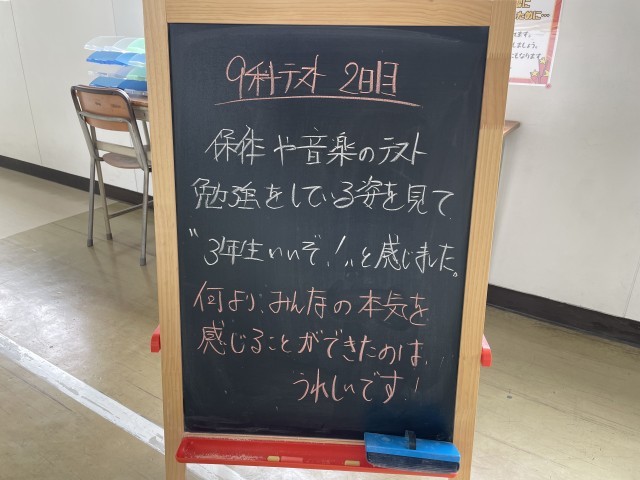 9科テスト 2日目
保体や音楽のテスト
勉強をしている姿を見て
"3年生いいぞ!"と感じました。
何より、みんなの本気を
感じることができたのは、
うれしいです!